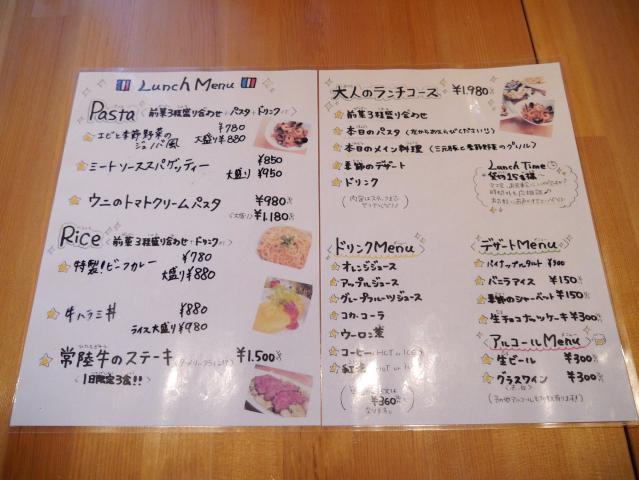 Lunch Menu
Pasta (前菜3種盛り合わせ・パスタ・ドリンク付)
エビと季節野菜の
ジェノバ風
¥780
大盛り¥880
ミートソーススパゲッティー
¥850
大盛り¥950
ウニのトマトクリームパスタ
¥980
(大盛り) ¥1,180
Rice (前菜3種盛り合わせ・ドリンク付)
特製!ビーフカレー
¥780
大盛り¥880
牛ハラミ丼
¥880
ライス大盛り¥980
常陸牛のステーキ
¥1,500
1日限定3食!!
大人のランチコース ¥1,980
前菜3種盛り合わせ
本日のパスタ
本日のメイン料理 (三元豚と季節野菜のグリル)
季節のデザート
ドリンク
Lunch Time
貸切15名様~
ドリンクMenu
オレンジジュース
アップルジュース
グレープフルーツジュース
コカ・コーラ
ウーロン茶
コーヒー(HOT or ICE)
紅茶(HOT or ICE)
¥360
デザートMenu
パイナップルタルト ¥300
バニラアイス ¥150
季節のシャーベット ¥150
生チョコナッツケーキ ¥300
アルコールMenu
生ビール ¥300
グラスワイン ¥300